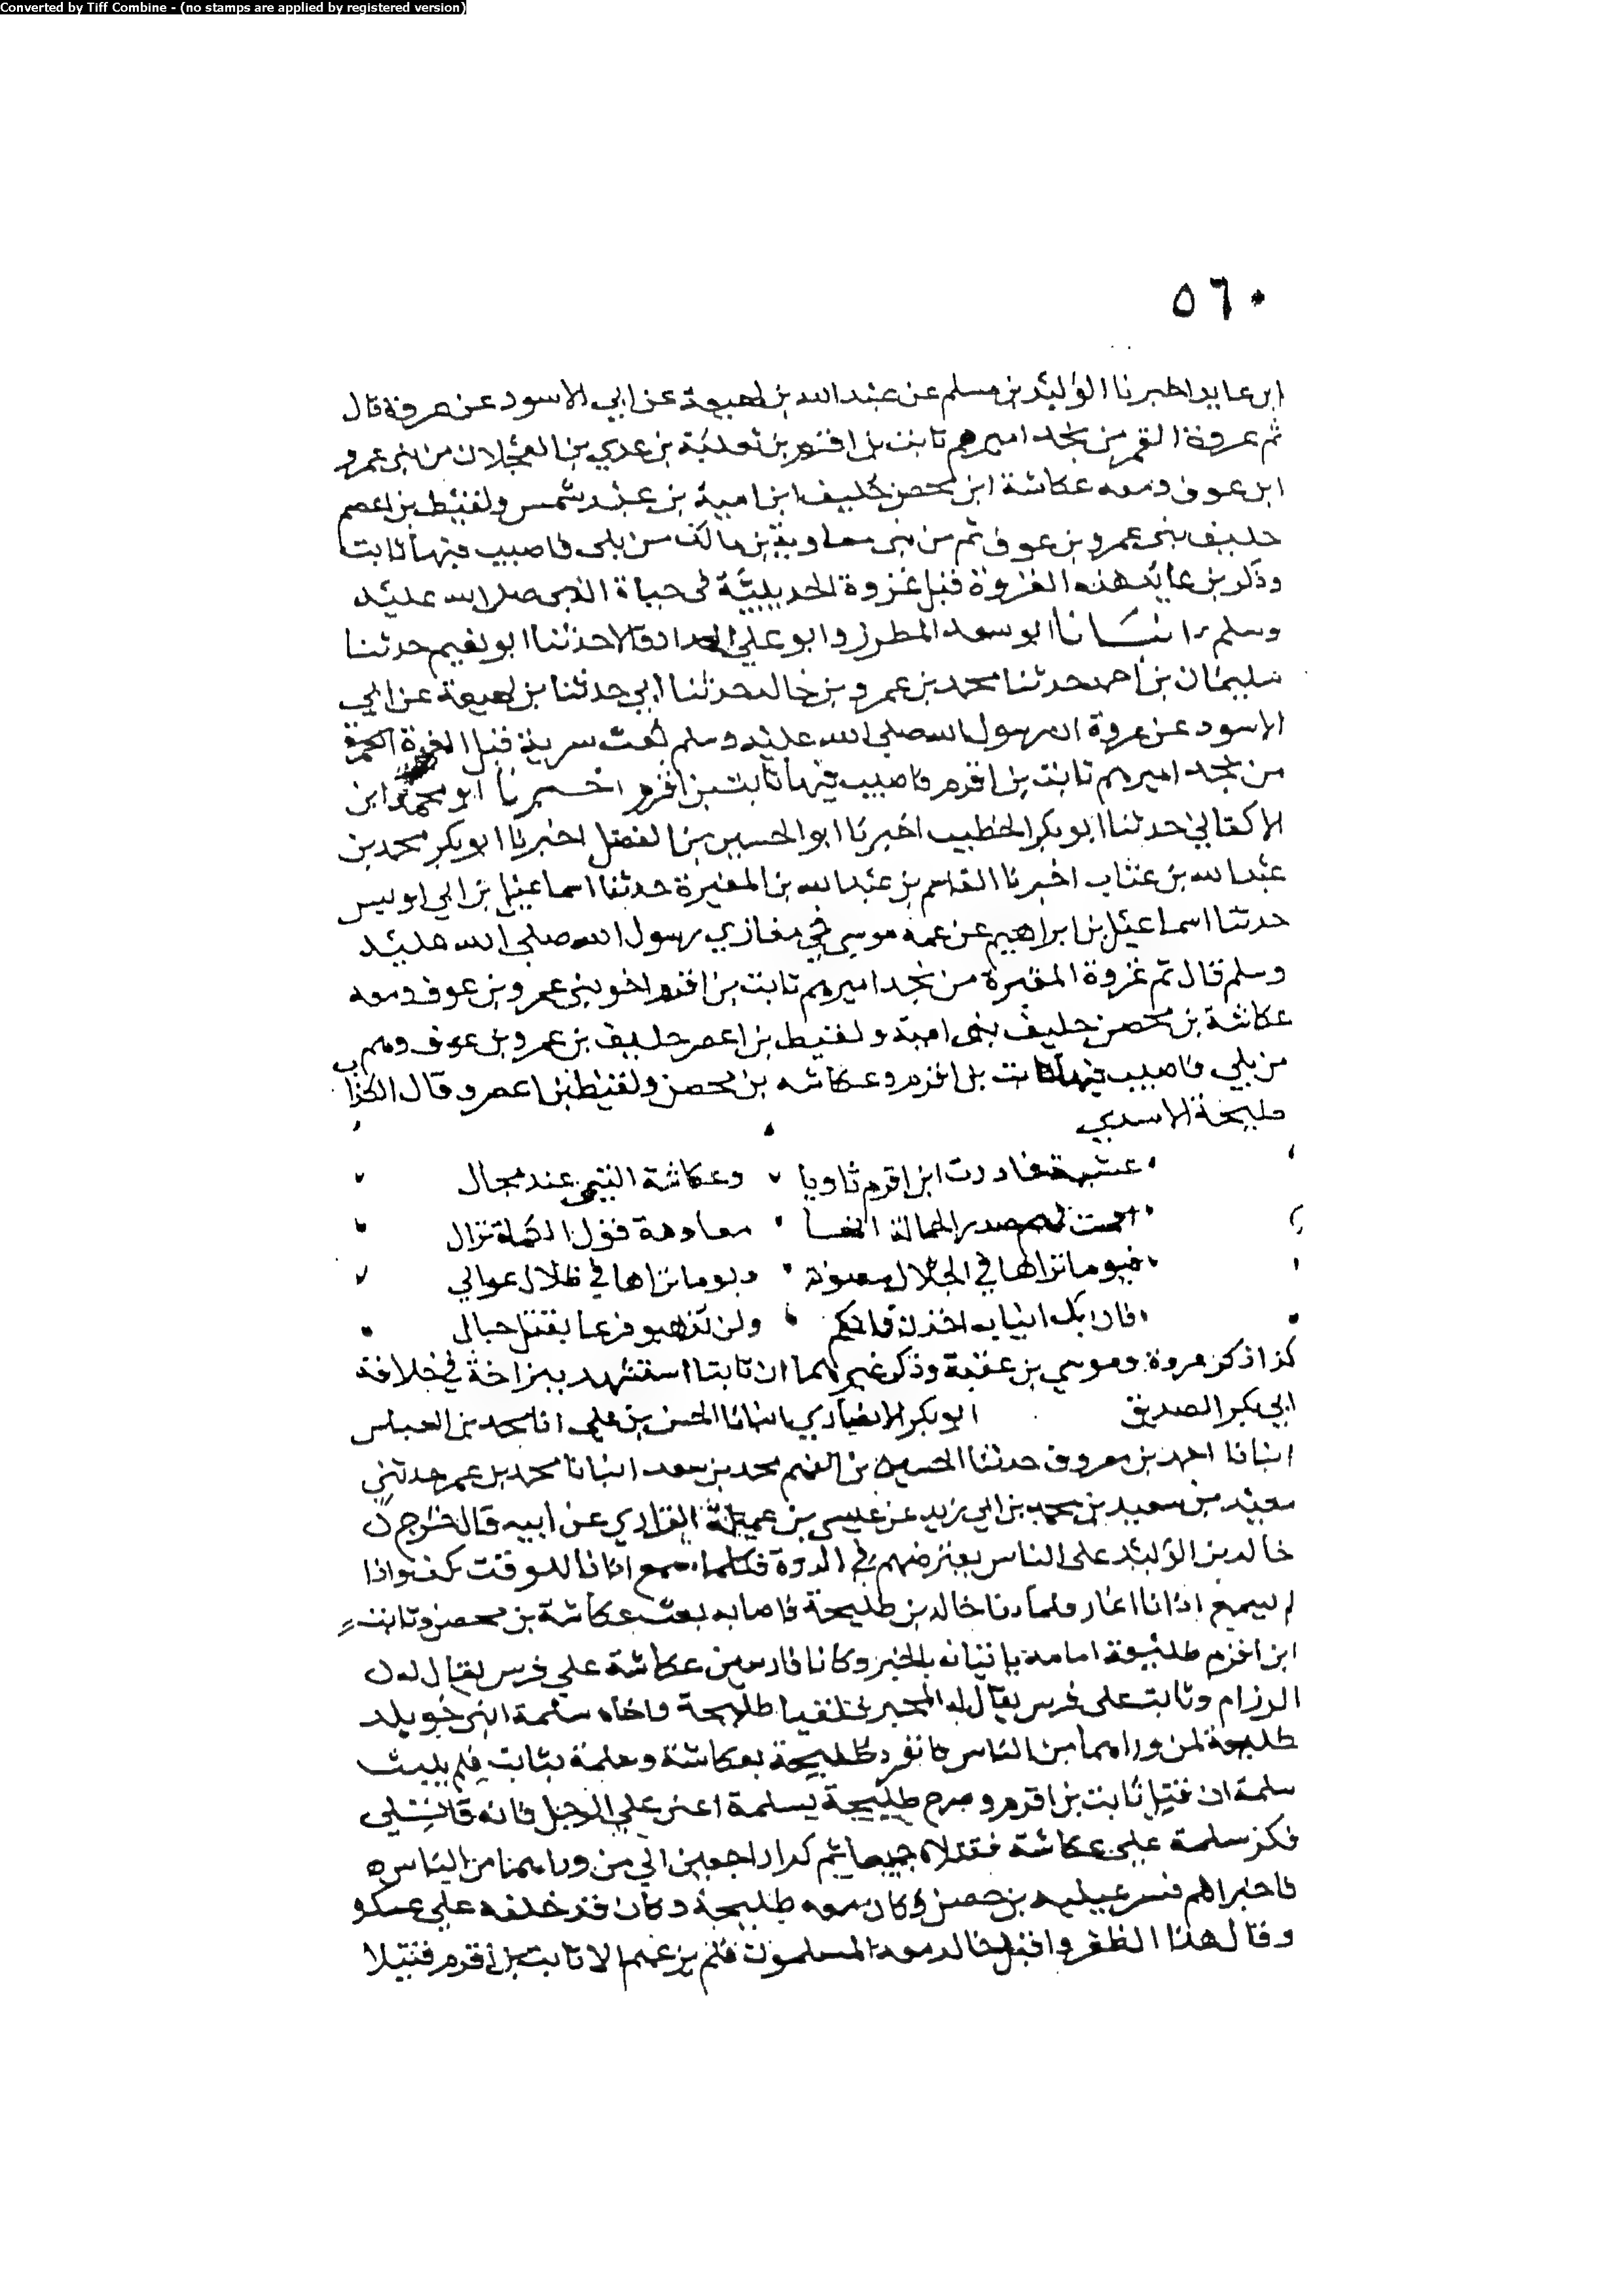 Converted by Tiff Combine - (no stamps are applied by registered version)
٥٦٠
ابن عايد اخبرنا الوليد بن مسلم عن عبد الله بن لهيعة عن ابي الاسود عن عروة قال
ثم غزوة القمر من نجد اميرهم ثابت بن اقرم بن ثعلبة بن عدي بن العجلان من بني عمرو
ابن عوف ومعه عكاشة ابن محصن حليف ابن امية بن عبد شمس ولقيط بن اعصم
حليف بني عمرو بن عوف ثم من بني معاوية بن مالك من بلى فاصيب فيها ثابت
وذكر بن عائذ هذه الغزوة قبل غزوة الحديبية في حياة النبي صلى الله عليه
وسلم انبانا ابو سعد المطرز وابو علي الحداد قالا حدثنا ابو نعيم حدثنا
سليمان بن احمد حدثنا محمد بن عمرو بن خالد حدثنا ابي حدثنا بن لهيعة عن ابي
الاسود عن عروة ان رسول الله صلى الله عليه وسلم بعث سرية قبل الغمرة
من نجد اميرهم ثابت بن اقرم فاصيب فيها ثابت بن اقرم اخبرنا ابو محمد ابن
الاكفاني حدثنا ابو بكر الخطيب اخبرنا ابوا الحسين بن الفضل اخبرنا ابو بكر محمد بن
عبد الله بن عتاب اخبرنا القاسم بن عبد الله بن المغيرة حدثنا اسماعيل بن ابي اويس
حدثنا اسماعيل بن ابراهيم عن عمه موسى في مغازي رسول الله صلى الله عليه
وسلم قال ثم غزوة الغمرة من نجد اميرهم ثابت بن اقرم اخو بني عمرو بن عوف ومعه
عكاشة بن محصن حليف بني امية ولقيط بن اعصر حليف بن عمرو بن عوف وهم
من بلي فاصيب فيها ثابت بن اقرم وعكاشه بن محصن ولقيط بن اعصر وقال الكذاب
طليحة الاسدي
عشية غادرت ابن اقرم ثاويا وعكاشة الغنمي عند مجال
اقمت لهم صدر الحمالة انها معاودة قول الكماة نزال
فيوما تراها في الجلال مصونة ويوما تراها في ظلال عوالي
فان يك اذياب اخذن فانكم ولن تذهبو فرغا بقتل حبال
كذا ذكر عروة وموسي بن عقبة وذكر غيرهما ان ثابتا استشهد ببزاخة في خلافة
ابي بكر الصديق ابو بكر الانصاري انبانا الحسن بن علي انا محمد بن العباس
انبانا احمد بن معروف حدثنا الحسين بن الفهم محمد بن سعد انبانا محمد بن عمر حدثني
سعيد بن محمد بن ابي زيد عن عيسى بن عميلة الفزاري عن ابيه قال خرج
خالد بن الوليد على الناس يعترضهم في الردة فكلما سمع اذانا للوقت كف واذا
لم يسمع اذانا اغار فلما دنا خالد بن طليحة فاصابه بعث عكاشة بن محصن وثابت
ابن اقرم طليعة امامه ياتيانه بالخبر وكانا فارسين عكاشة علي فرس يقال له
الرزام وثابت على فرس يقال له المحبر فلقيا طليحة واخاه سلمة ابني خويلد
طليعة لمن وراهما من الناس فانفرد طليحة بعكاشة وسلمة بثابت فلم يلبث
سلمة ان قتل ثابت بن اقرم وصرح طليحة بسلمة اعني علي الرجل فانه قاتلي
فكر سلمة علي عكاشة فقتلاه جميعا ثم كرا راجعين الي من وراهما من الناس
فاخبراهم فسر عيينة بن حصن وكان معه طليحة وكان قد خلفه علي عسكره
وقال هذا الظفر واقبل خالد معه المسلمون فلم يرعهم الا ثابت بن اقرم قتيلا